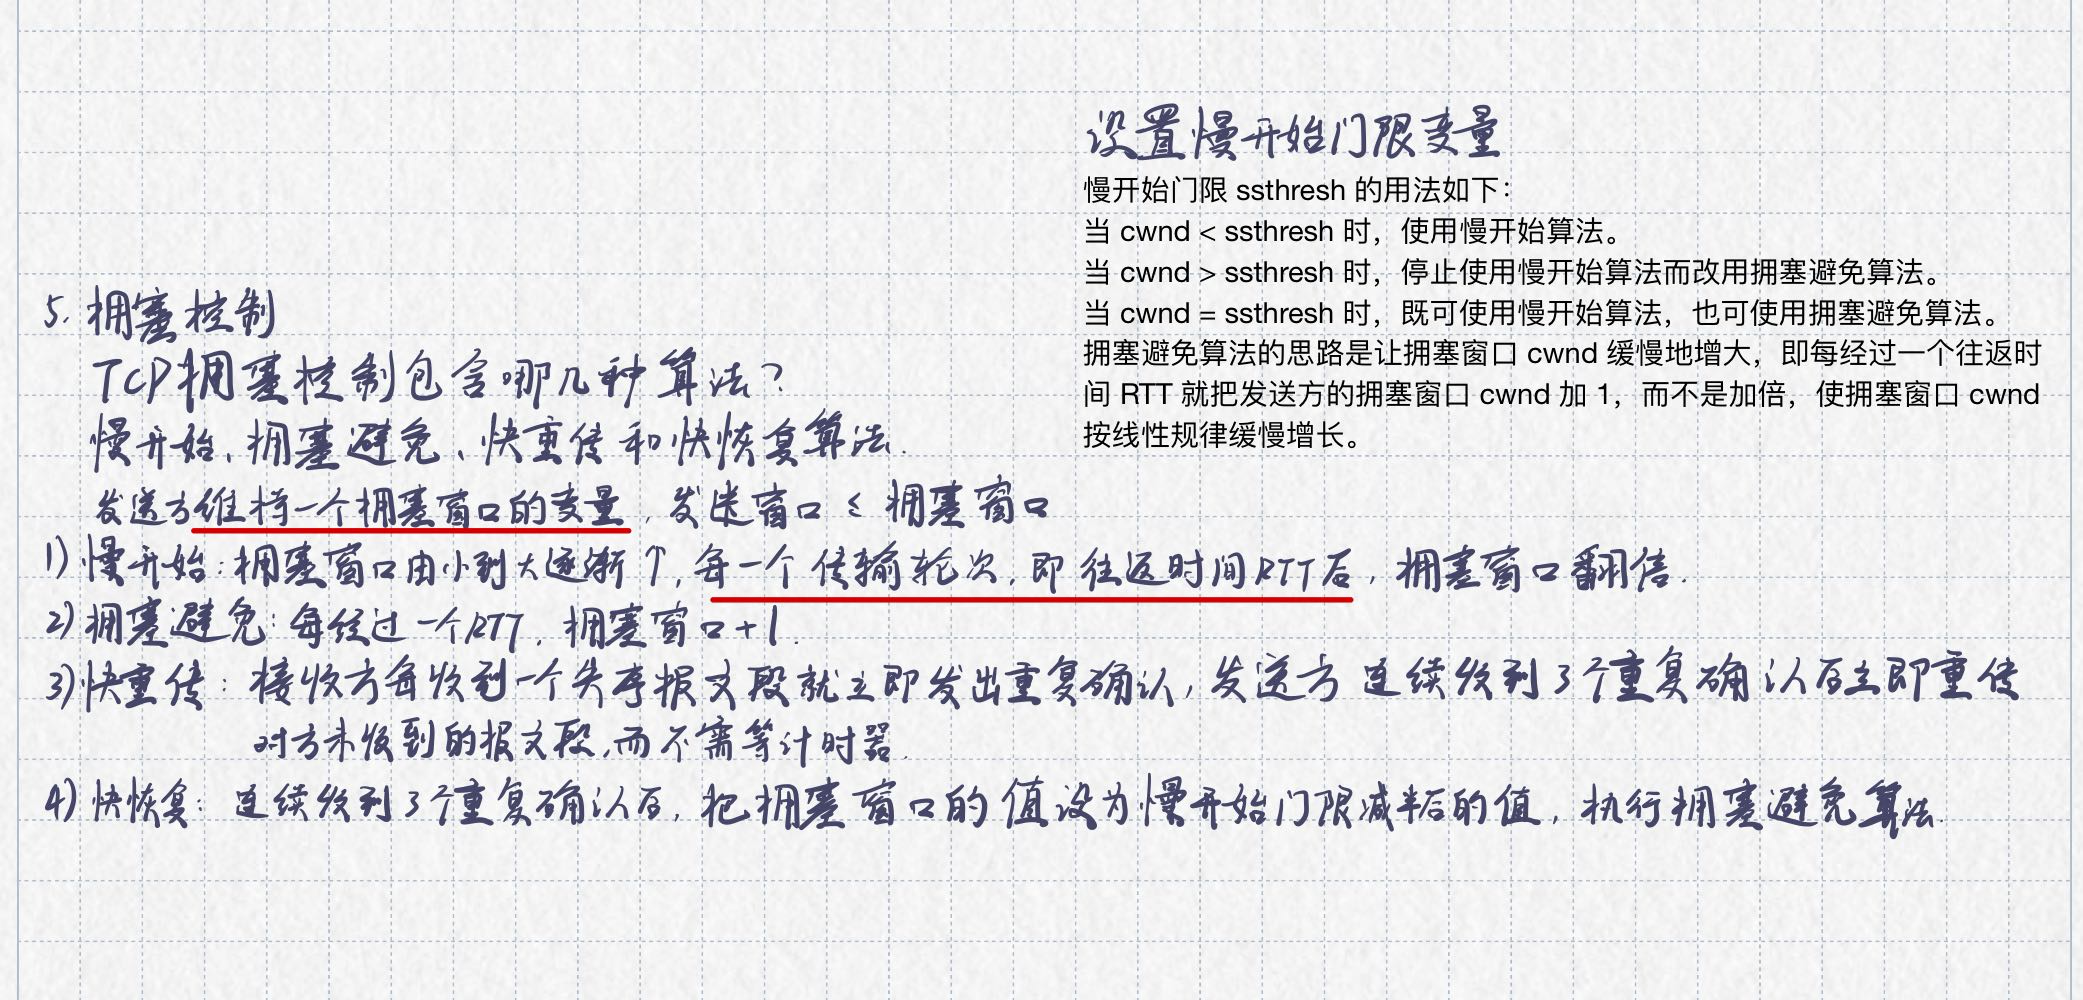 设置慢开始门限变量
慢开始门限 ssthresh 的用法如下：
当 cwnd < ssthresh 时，使用慢开始算法。
当 cwnd > ssthresh 时，停止使用慢开始算法而改用拥塞避免算法。
当 cwnd = ssthresh 时，既可使用慢开始算法，也可使用拥塞避免算法。
拥塞避免算法的思路是让拥塞窗口 cwnd 缓慢地增大，即每经过一个往返时
间 RTT 就把发送方的拥塞窗口 cwnd 加 1，而不是加倍，使拥塞窗口 cwnd
按线性规律缓慢增长。
5. 拥塞控制
TCP拥塞控制包含哪几种算法？
慢开始、拥塞避免、快重传和快恢复算法.
发送方维持一个拥塞窗口的变量，发送窗口 ≤ 拥塞窗口
1) 慢开始：拥塞窗口由小到大逐渐↑，每一个传输轮次，即往返时间RTT后，拥塞窗口翻倍.
2) 拥塞避免：每经过一个RTT，拥塞窗口+1.
3) 快重传：接收方每收到一个失序报文段就立即发出重复确认，发送方连续收到3个重复确认后立即重传
对方未收到的报文段，而不需等计时器.
4) 快恢复：连续收到3个重复确认后，把拥塞窗口的值设为慢开始门限减半后的值，执行拥塞避免算法.